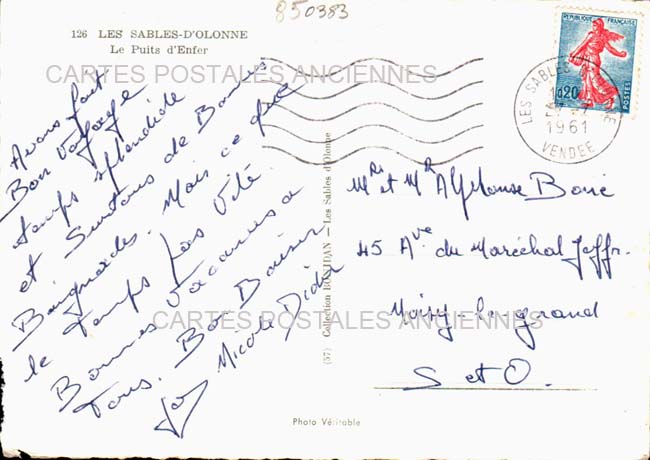 850383
126 LES SABLES-D'OLONNE
Le Puits d'Enfer
CARTES POSTALES ANCIENNES
REPUBLIQUE FRANÇAISE
0,20
POSTES
LES SABLES
1961
VENDEE
Avons fait
Bon Voyage
temps splendide
et Surtout de Bonnes
Baignades. Mais ce que
le temps pas Vite.
Bonnes Vacances a
Tous. Bon Baiser
Nicole Didier
(57) Collection BONIDAN — Les Sables d'Olonne
Mr et Mr Alphonse
45 Ave du Maréchal Joffr.
Noisy-le-grand
S et O.
CARTES POSTALES ANCIENNES
Photo Véritable